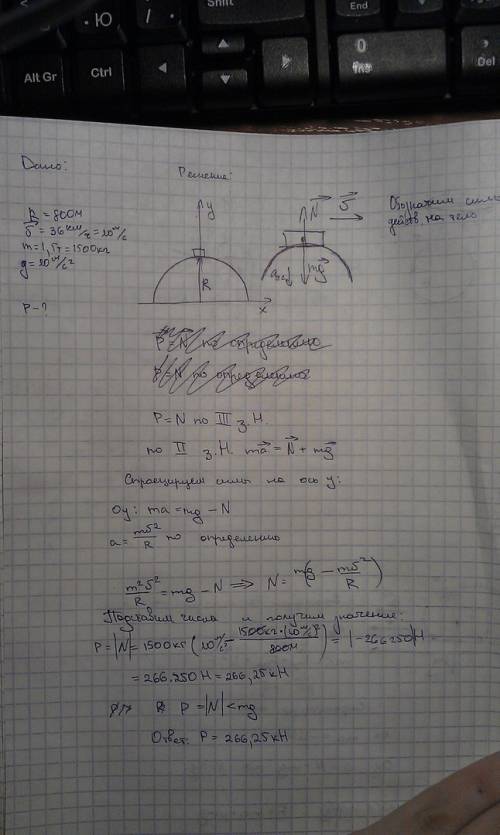 Shift
End
.Ю
/
.
0
Ins
Del
Alt Gr
Ctrl
Дано:
Решение:
R = 800м
υ = 36 км/ч = 10 м/с
m = 1,5т = 1500кг
g = 10 м/с²
P - ?
y
R
x
N υ
a mg
Обозначим силы
действ. на тело
P = N по определению
P = N по определению
P = N по III з.Н.
по II з.Н. ma = N + mg
Спроецируем силы на ось y:
Oy: ma = mg - N
a = mυ²/R по определению
m²υ²/R = mg - N => N = m(g - mυ²/R)
Подставим числа и получим значение:
P = |N| = 1500кг (10 м/с² - 1500кг·(10 м/с)²/800м) = |-266250|Н
= 266.250 Н = 266,25кН
P = |N| < mg
Ответ: P = 266,25кН